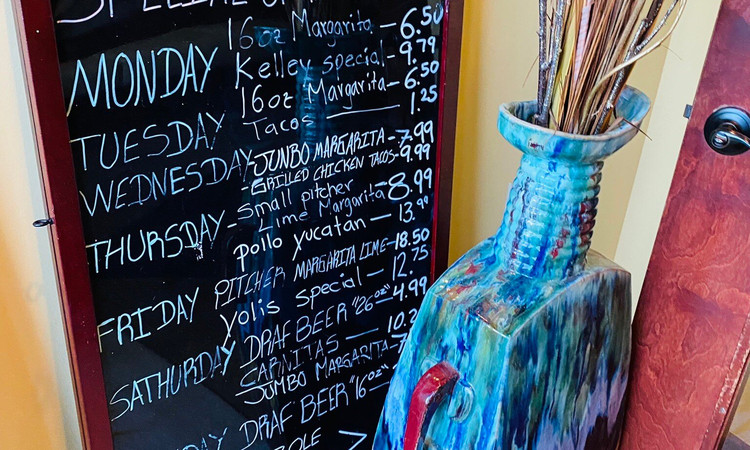 SPECIAL
MONDAY 16oz Margarita - 6.50
Kelley special - 9.79
TUESDAY 16oz Margarita - 6.50
Tacos — 1.25
WEDNESDAY - JUNBO MARGARITA - 7.99
- GRILLED CHICKEN TACOS - 9.99
THURSDAY - Small pitcher
Lime Margarita - 8.99
pollo yucatan — 13.99
FRIDAY PITCHER MARGARITA LIME - 18.50
yolis Special — 12.75
SATHURDAY DRAF BEER "26oz" - 4.99
CARNITAS — 10.2
JUMBO MARGARITA -
DRAF BEER "16oz" —